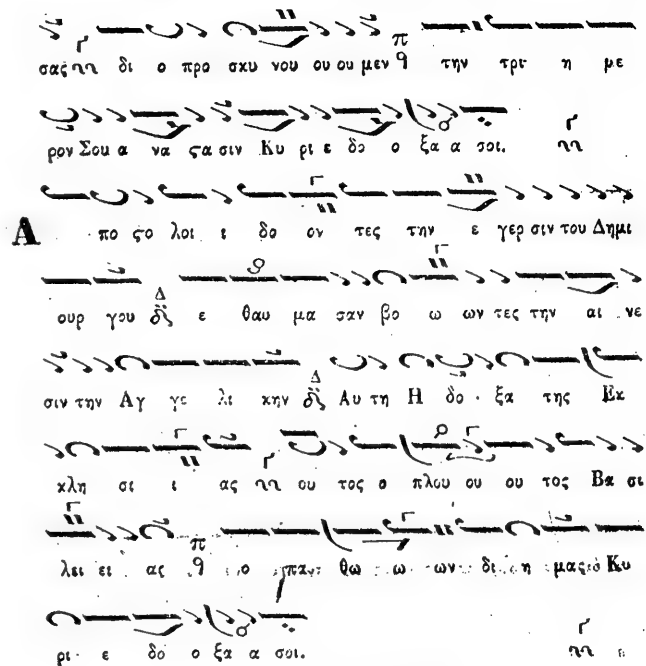 σας δι ο προ σκυ νου ου ου μεν την τρι η με
ρον Σου α να ϛα σιν Κυ ρι ε δο ο ξα α σοι.
Α πο ϛο λοι ι δο ον τες την ε γερ σιν του Δημι
ουρ γου ε θαυ μα σαν βο ω ων τες την αι νε
σιν την Αγ γε λι κην Αυ τη Η δο ξα της Εκ
κλη σι ι ας ου τος ο πλου ου ου τος Βα σι
λει ει ας ο πα θω ω ων δι η μας Κυ
ρι ε δο ο ξα α σοι.